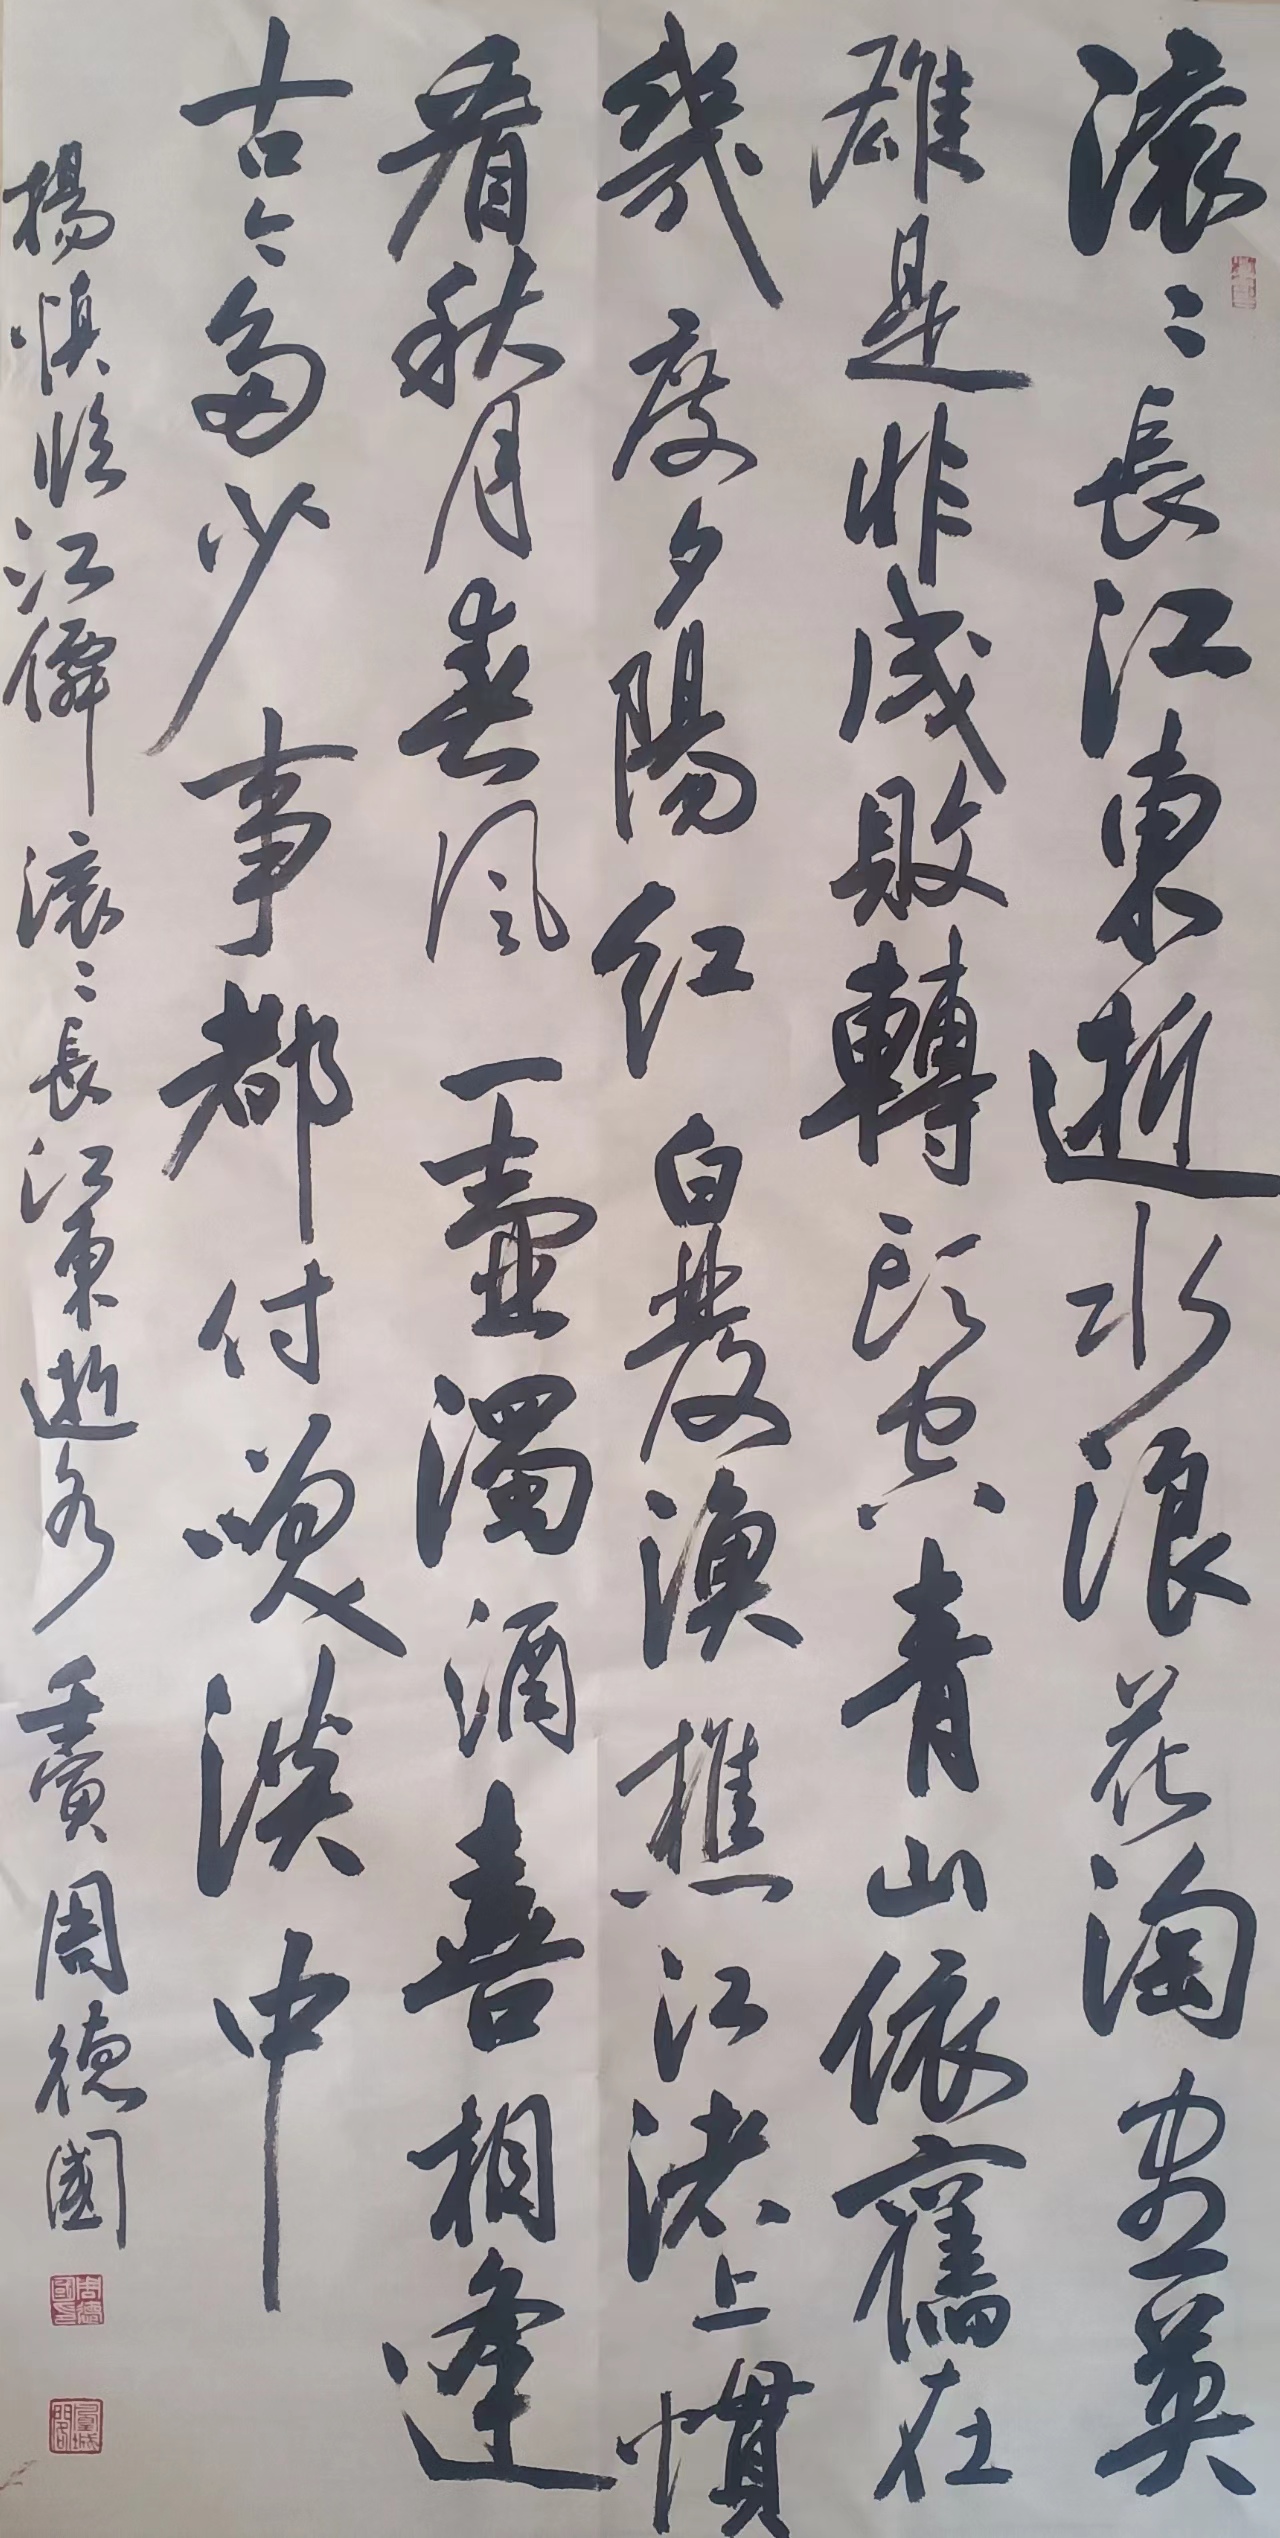 滚〻長江東逝水浪花淘尽英
雄是非成敗轉頭空青山依舊在
幾度夕陽紅白髮漁樵江渚上慣
看秋月春風一壺濁酒喜相逢
古今多少事都付笑談中
楊慎臨江僊滚〻長江東逝水壬寅周德國